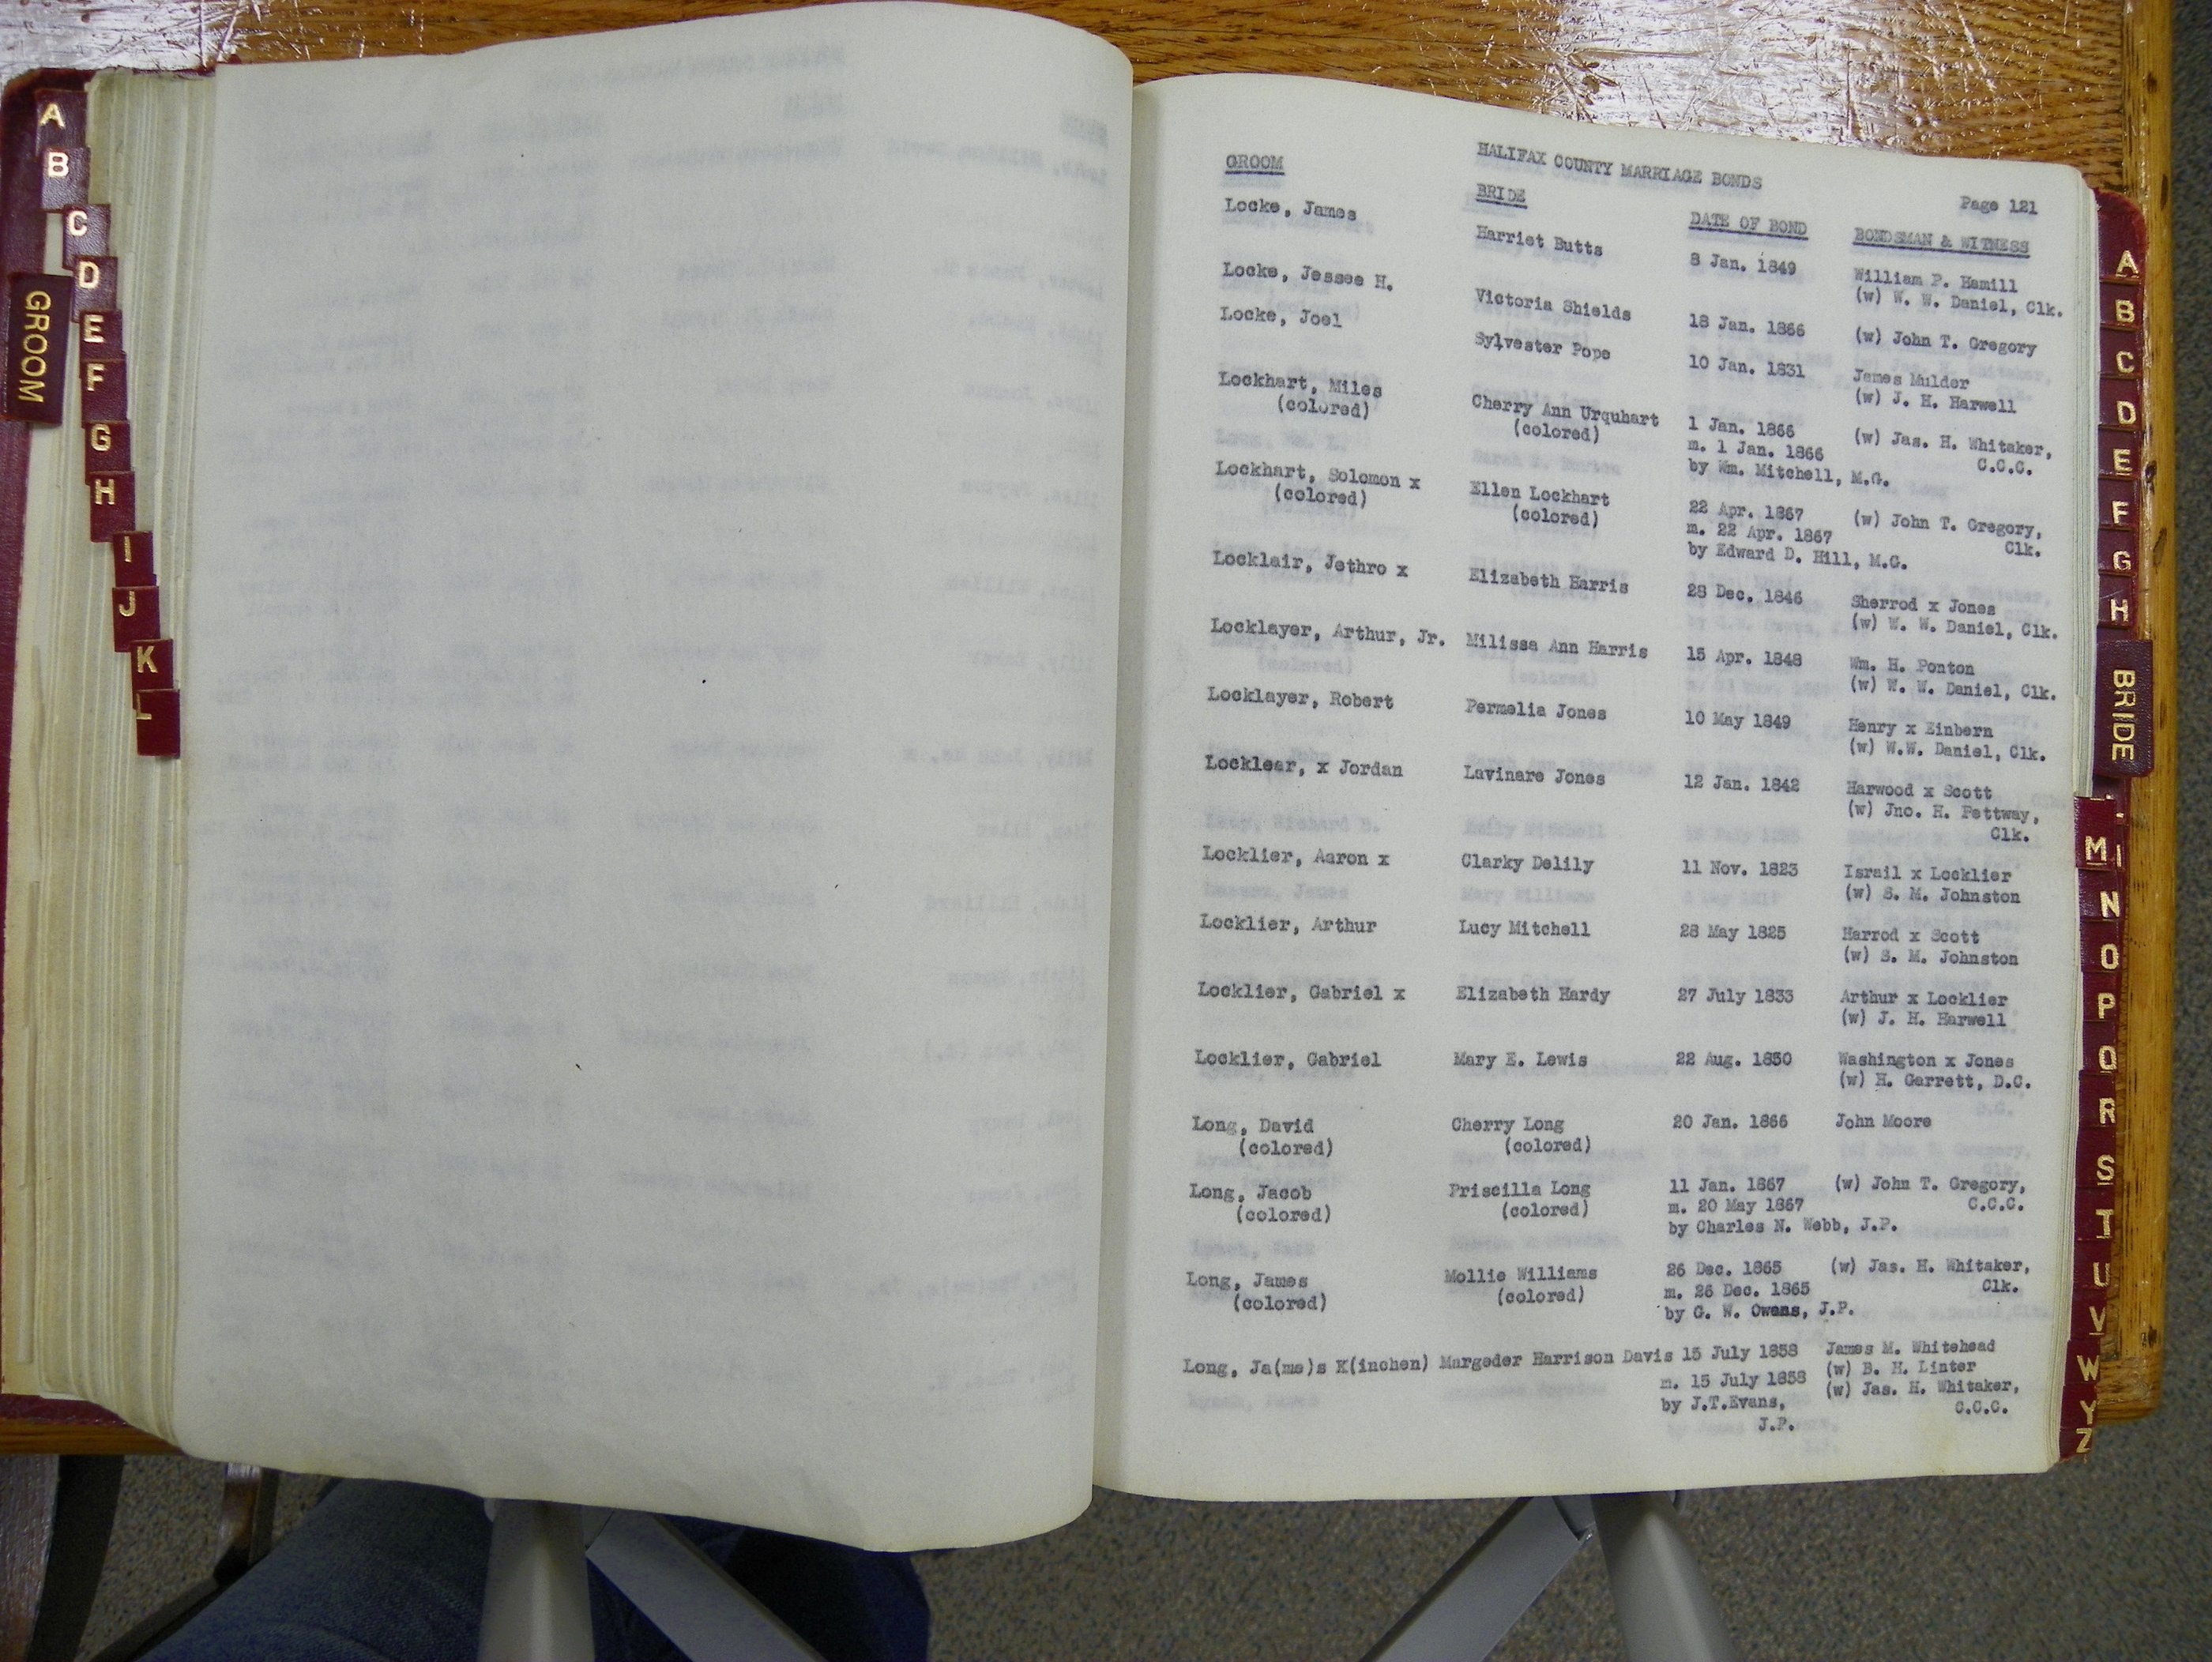 A
B
C
D
GROOM
E
F
G
H
I
J
K
L
HALIFAX COUNTY MARRIAGE BONDS
Page 121
GROOM BRIDE DATE OF BOND BONDSMAN & WITNESS
Locke, James Harriet Butts 8 Jan. 1849 William P. Hamill
(w) W. W. Daniel, Clk.
Locke, Jessee H. Victoria Shields 18 Jan. 1866 (w) John T. Gregory
Locke, Joel Sylvester Pope 10 Jan. 1831 James Mulder
(w) J. H. Harwell
Lockhart, Miles Cherry Ann Urquhart 1 Jan. 1866 (w) Jas. H. Whitaker,
(colored) (colored) m. 1 Jan. 1866 C.C.C.
by Wm. Mitchell, M.G.
Lockhart, Solomon x Ellen Lockhart 22 Apr. 1867 (w) John T. Gregory,
(colored) (colored) m. 22 Apr. 1867 Clk.
by Edward D. Hill, M.G.
Locklair, Jethro x Elizabeth Harris 28 Dec. 1846 Sherrod x Jones
(w) W. W. Daniel, Clk.
Locklayer, Arthur, Jr. Milissa Ann Harris 15 Apr. 1848 Wm. H. Ponton
(w) W. W. Daniel, Clk.
Locklayer, Robert Permelia Jones 10 May 1849 Henry x Einbern
(w) W.W. Daniel, Clk.
Locklear, x Jordan Lavinare Jones 12 Jan. 1842 Harwood x Scott
(w) Jno. H. Pettway,
Clk.
Locklier, Aaron x Clarky Delily 11 Nov. 1823 Israil x Locklier
(w) S. M. Johnston
Locklier, Arthur Lucy Mitchell 28 May 1825 Harrod x Scott
(w) S. M. Johnston
Locklier, Gabriel x Elizabeth Hardy 27 July 1833 Arthur x Locklier
(w) J. H. Harwell
Locklier, Gabriel Mary E. Lewis 22 Aug. 1850 Washington x Jones
(w) H. Garrett, D.C.
Long, David Cherry Long 20 Jan. 1866 John Moore
(colored) (colored)
Long, Jacob Priscilla Long 11 Jan. 1867 (w) John T. Gregory,
(colored) (colored) m. 20 May 1867 C.C.C.
by Charles N. Webb, J.P.
Long, James Mollie Williams 26 Dec. 1865 (w) Jas. H. Whitaker,
(colored) (colored) m. 26 Dec. 1865 Clk.
by G. W. Owens, J.P.
Long, Ja(me)s K(inchen) Margeder Harrison Davis 15 July 1858 James M. Whitehead
m. 15 July 1858 (w) B. H. Linter
by J.T.Evans, (w) Jas. H. Whitaker,
J.P. C.C.C.
A
B
C
D
E
F
G
H
BRIDE
M
N
O
P
Q
R
S
T
U
V
W
Y
Z